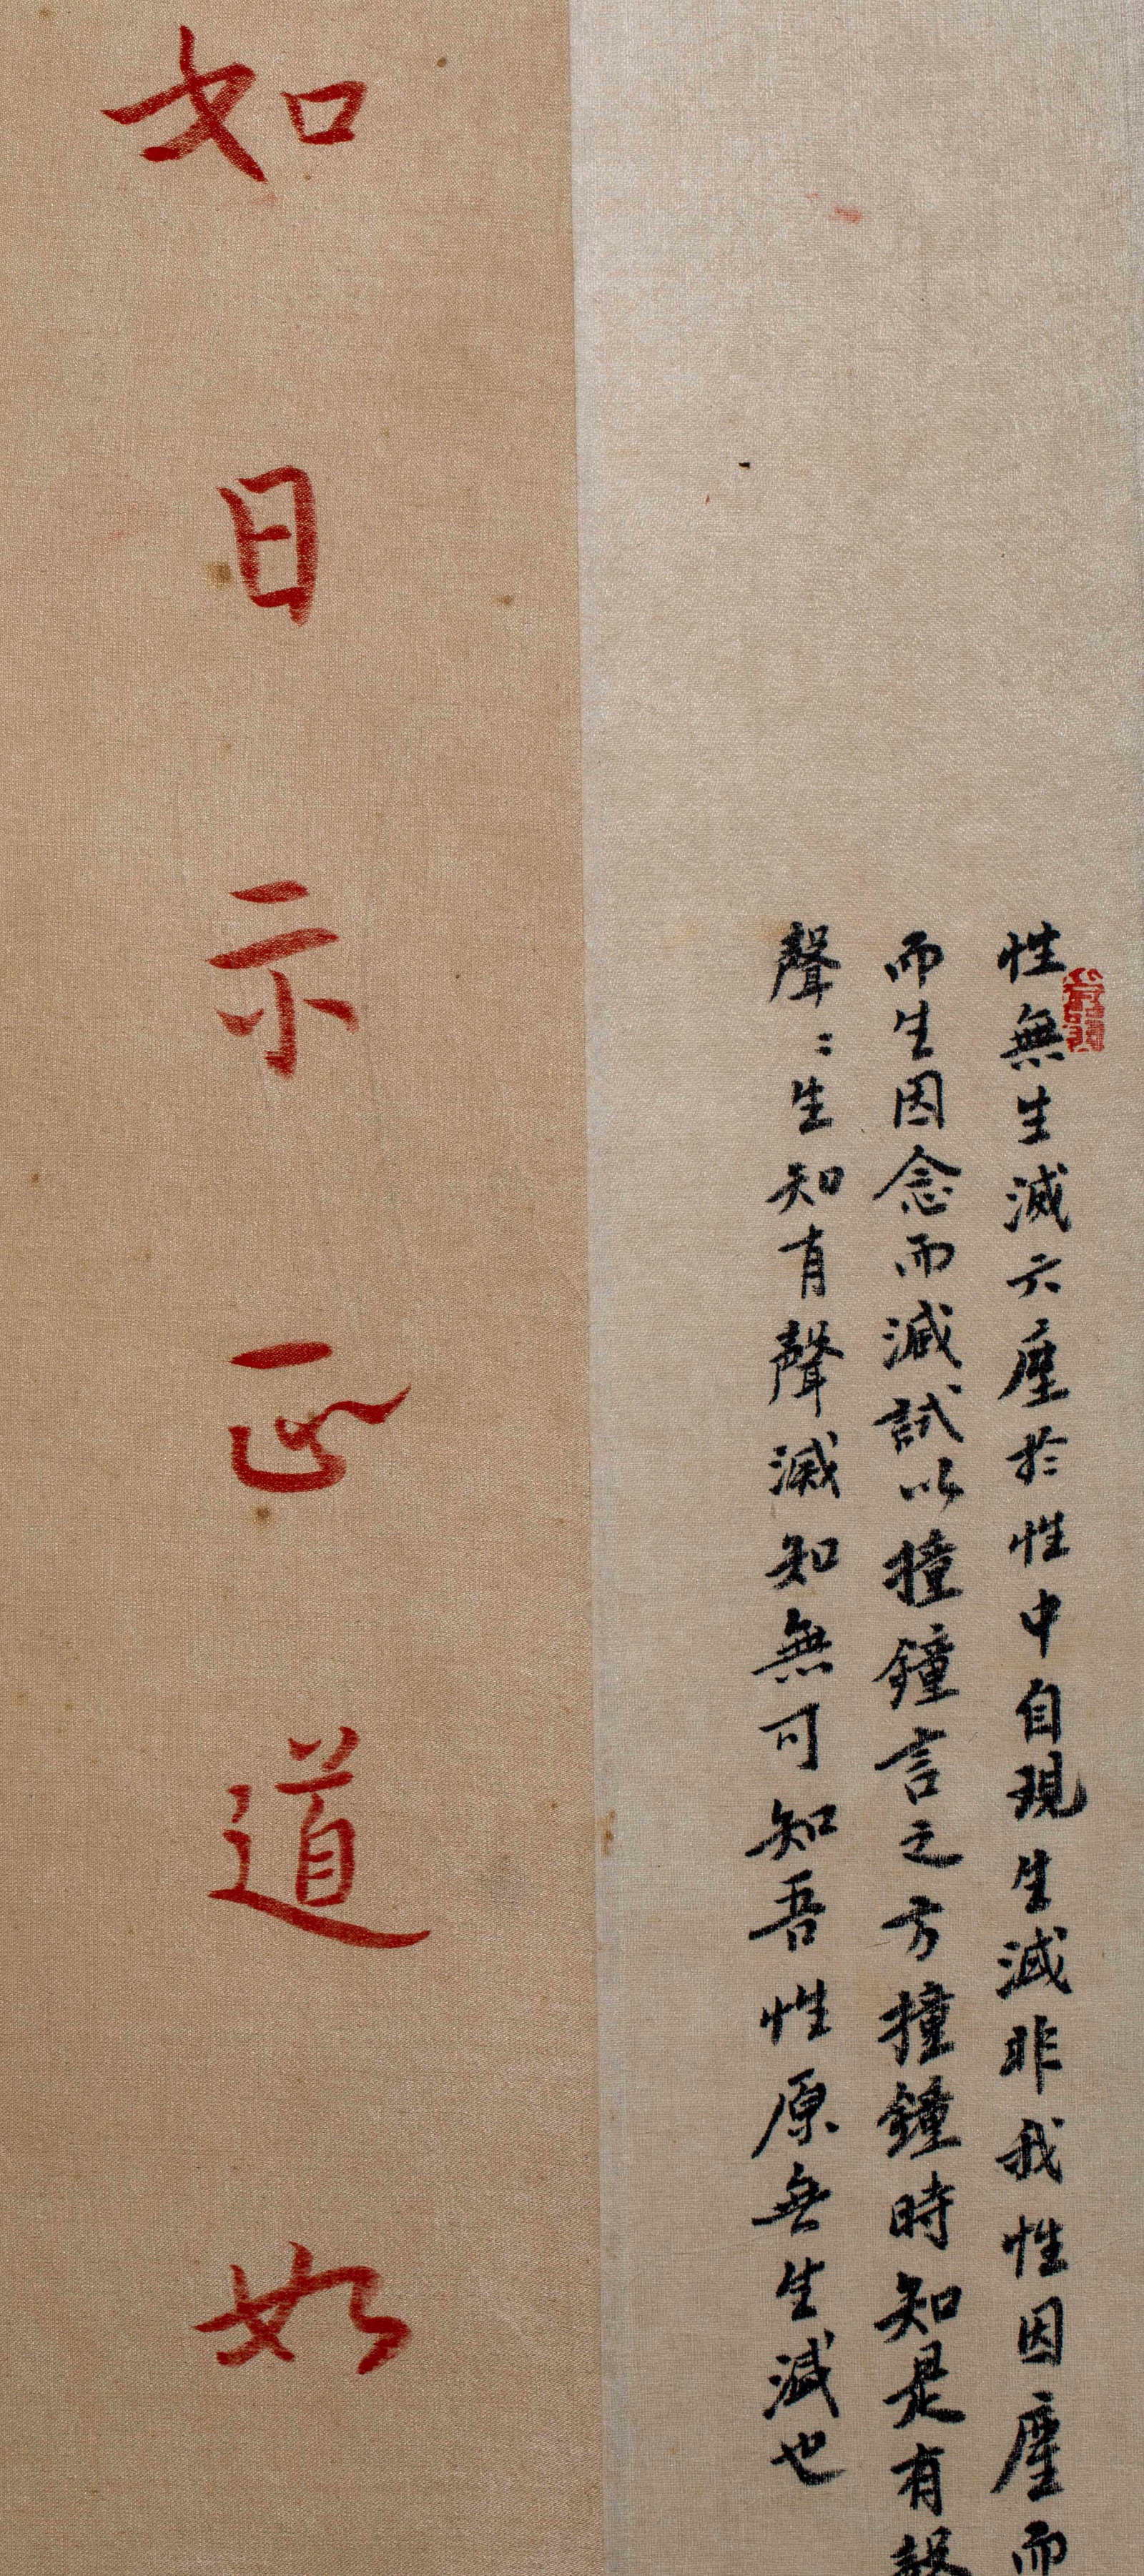 性無生滅六塵於性中自現生滅非我性因塵而
而生因念而滅試以撞鐘言之方撞鐘時知是有聲
聲〻生知有聲滅知無可知吾性原無生滅也
如日示正道如